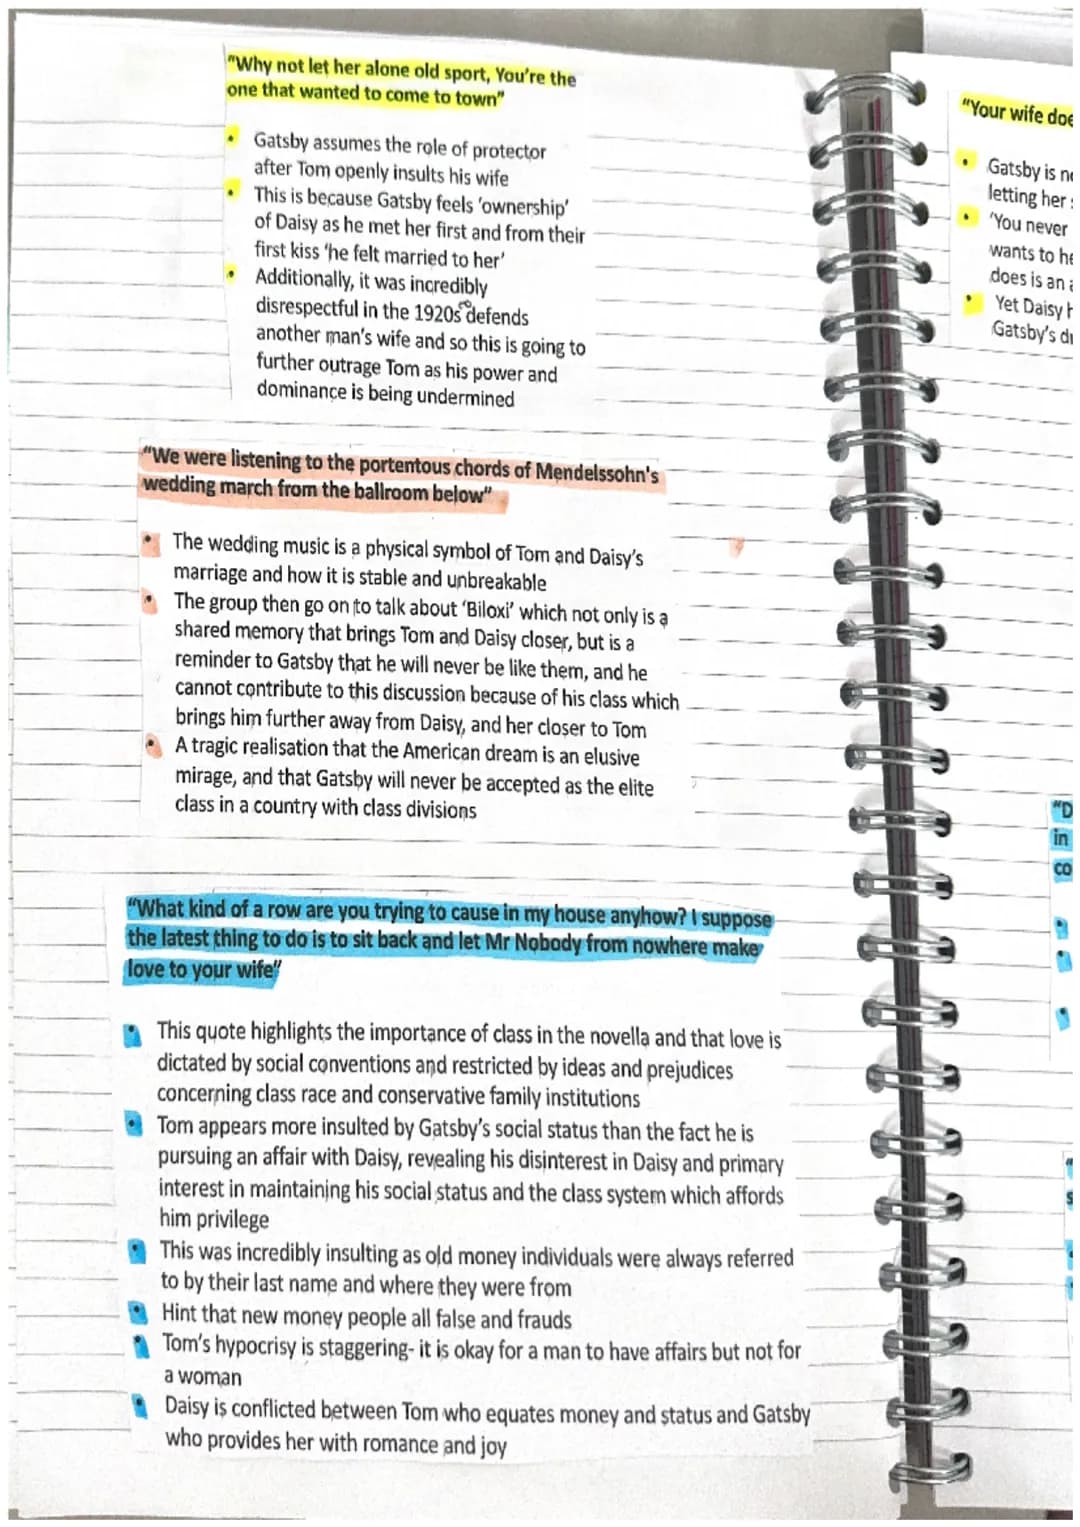 "Why not let her alone old sport, You're the
one that wanted to come to town"
• Gatsby assumes the role of protector
after Tom openly insults his wife
• This is because Gatsby feels 'ownership'
of Daisy as he met her first and from their
first kiss 'he felt married to her'
• Additionally, it was incredibly
disrespectful in the 1920s defends
another man's wife and so this is going to
further outrage Tom as his power and
dominance is being undermined
"We were listening to the portentous chords of Mendelssohn's
wedding march from the ballroom below"
• The wedding music is a physical symbol of Tom and Daisy's
marriage and how it is stable and unbreakable
• The group then go on to talk about 'Biloxi' which not only is a
shared memory that brings Tom and Daisy closer, but is a
reminder to Gatsby that he will never be like them, and he
cannot contribute to this discussion because of his class which
brings him further away from Daisy, and her closer to Tom
• A tragic realisation that the American dream is an elusive
mirage, and that Gatsby will never be accepted as the elite
class in a country with class divisions
"What kind of a row are you trying to cause in my house anyhow? I suppose
the latest thing to do is to sit back and let Mr Nobody from nowhere make
love to your wife"
• This quote highlights the importance of class in the novella and that love is
dictated by social conventions and restricted by ideas and prejudices
concerning class race and conservative family institutions
• Tom appears more insulted by Gatsby's social status than the fact he is
pursuing an affair with Daisy, revealing his disinterest in Daisy and primary
interest in maintaining his social status and the class system which affords
him privilege
• This was incredibly insulting as old money individuals were always referred
to by their last name and where they were from
• Hint that new money people all false and frauds
• Tom's hypocrisy is staggering- it is okay for a man to have affairs but not for
a woman
• Daisy is conflicted between Tom who equates money and status and Gatsby
who provides her with romance and joy
"Your wife doe
• Gatsby is
letting her
• 'You never
wants to
does is an
• Yet Daisy
Gatsby's
"D
in
co